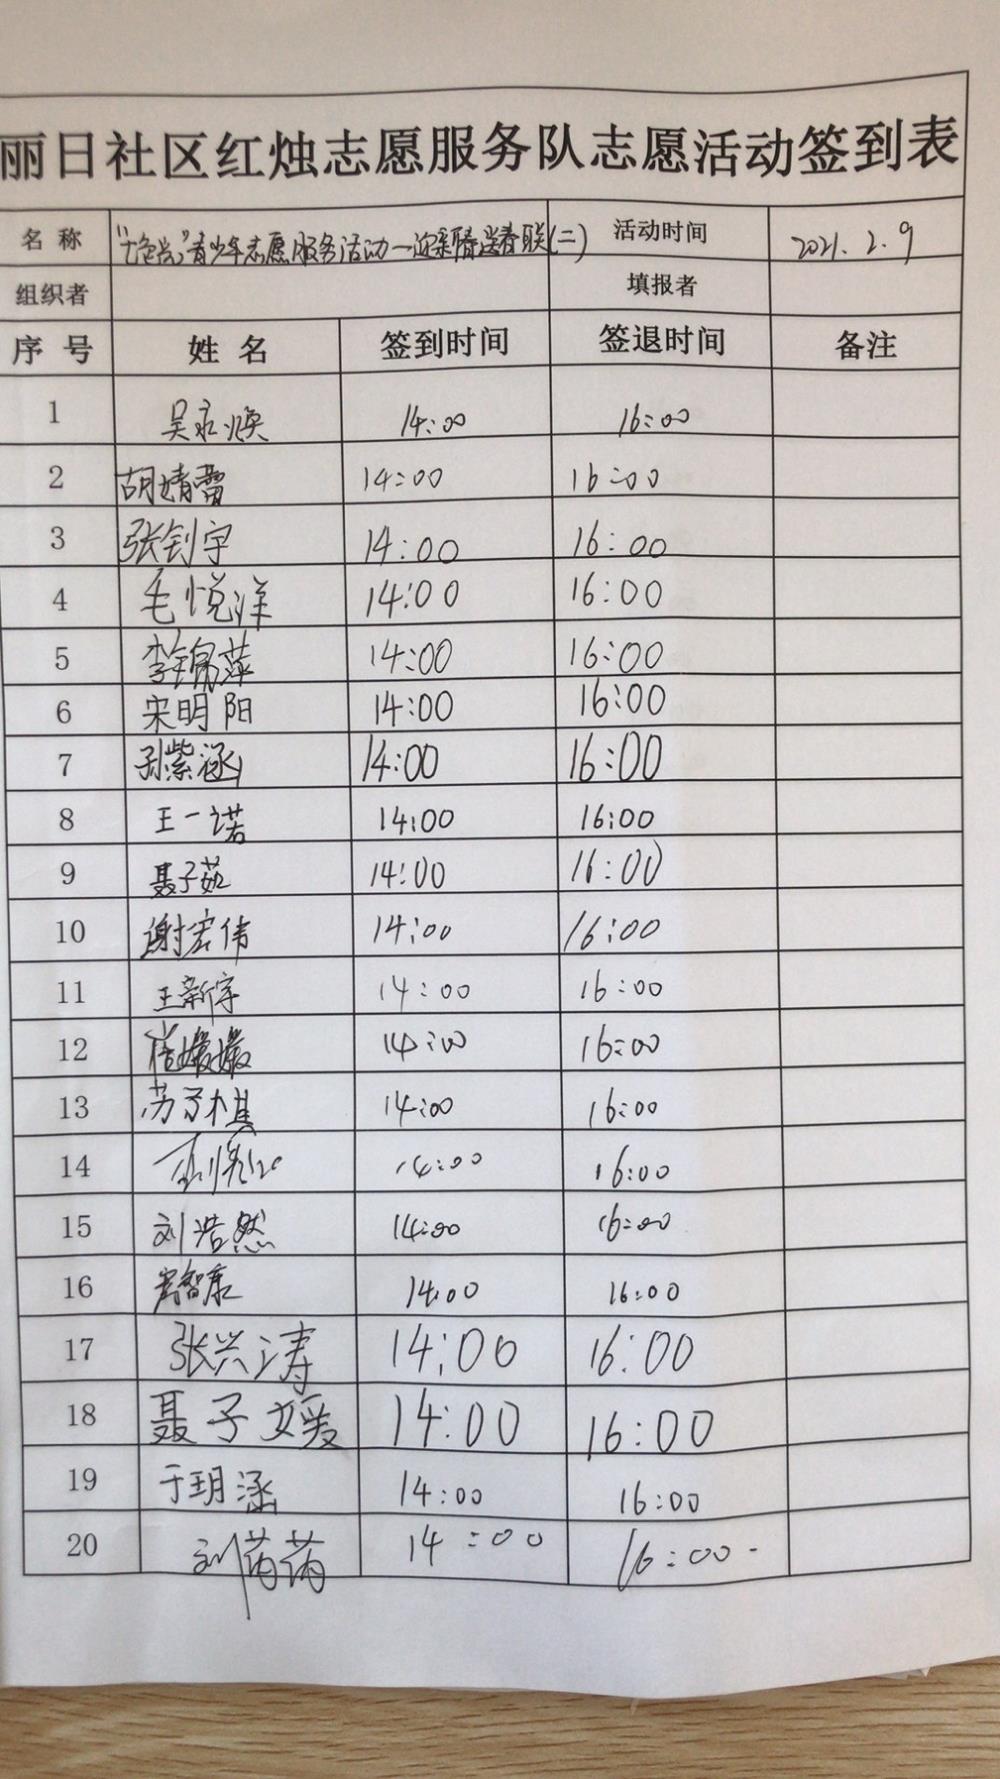 丽日社区红烛志愿服务队志愿活动签到表
名 称 "七色光"青少年志愿服务活动—迎新春送春联(二) 活动时间 2021.2.9
组织者 填报者
序 号 姓 名 签到时间 签退时间 备注
1 吴永焕 14:00 16:00
2 胡婧蕾 14:00 16:00
3 张钊宇 14:00 16:00
4 毛悦洋 14:00 16:00
5 李锦萍 14:00 16:00
6 宋明阳 14:00 16:00
7 孙紫涵 14:00 16:00
8 王一诺 14:00 16:00
9 聂子茹 14:00 16:00
10 谢宏伟 14:00 16:00
11 王新宇 14:00 16:00
12 14:00 16:00
13 苏子棋 14:00 16:00
14 14:00 16:00
15 刘浩然 14:00 16:00
16 智康 14:00 16:00
17 张兴涛 14:00 16:00
18 聂子媛 14:00 16:00
19 于玥涵 14:00 16:00
20 刘芮芮 14:00 16:00